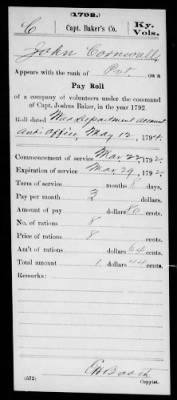 1792.
C
Capt. Baker's Co.
Ky. Vols.
John Cornwall
Appears with the rank of Pvt. on a
Pay Roll
of a company of volunteers under the command
of Capt. Joshua Baker, in the year 1792.
Roll dated War Department Account
ant's Office, May 12, 1794.
Commencement of service Mar 22, 1792.
Expiration of service Mar 29, 1792.
Term of service months 8 days.
Pay per month 3 dollars
Amount of pay dollars 80 cents.
No. of rations 8
Price of rations 8 cents.
Am't of rations dollars 64 cents.
Total amount 1 dollars 44 cents.
Remarks:
(572)
Copyist.